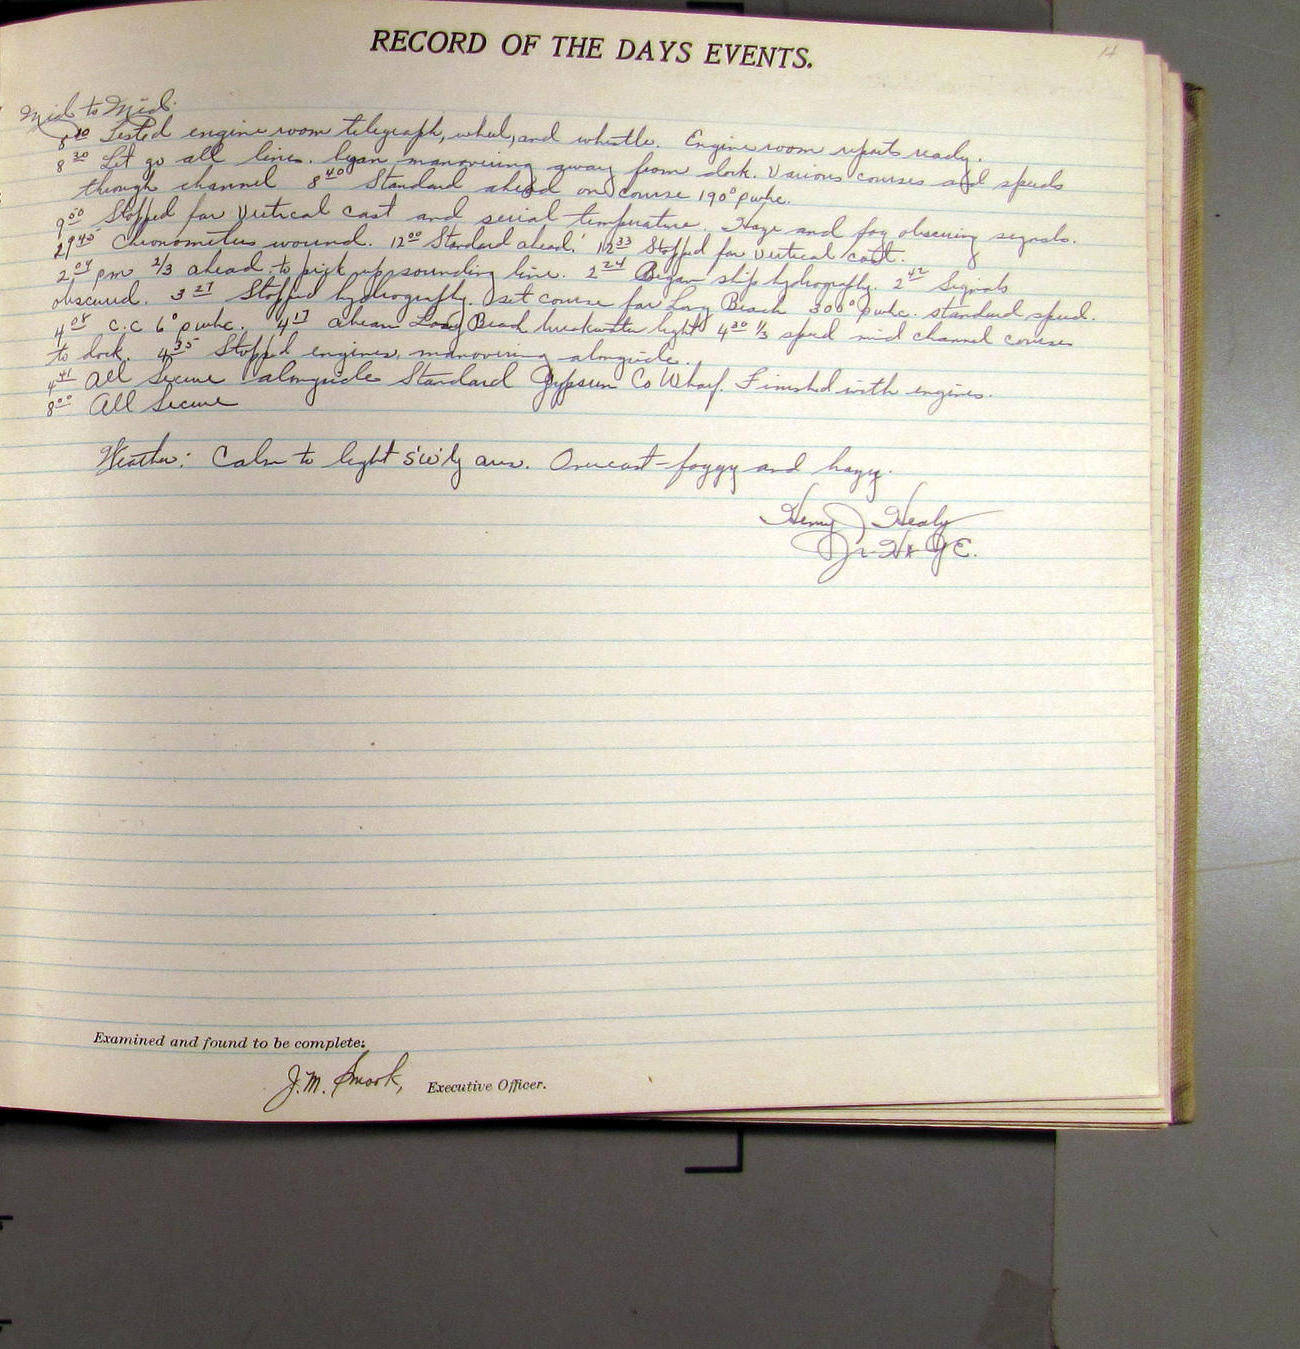 RECORD OF THE DAYS EVENTS.
14
Mid to Mid.
8 10 Tested engine room telegraph, wheel, and whistle. Engine room reports ready.
8 30 Let go all lines. began manovering away from dock. Various courses and speeds
through channel 8 40 Standard ahead on course 190° pwhc.
9 50 Stopped for Vertical cast and serial temperature. Haze and fog obscuring signals.
9 45 Cronometers wound. 12 00 Standard ahead. 12 33 Stopped for vertical cast.
2 04 pm 2/3 ahead, to pick up sounding line. 2 24 Began ship hydrography. 2 42 Signals
obscured. 3 27 Stopped hydrography. set course for Long Beach 300° pwhc. standard speed.
4 08 C.C 6° pwhc. 4 17 abeam Long Beach breakwater light 4 30 1/3 speed mid channel courses
to dock. 4 35 Stopped engines, manovering alongside.
4 41 All Secure alongside Standard Gypsum Co Wharf. Finished with engines.
8 00 All Secure
Weather: Calm to light S'W'ly airs. Overcast - foggy and hazy.
Henry J Healy
Jr. H & G E.
Examined and found to be complete:
J. M. Smook, Executive Officer.